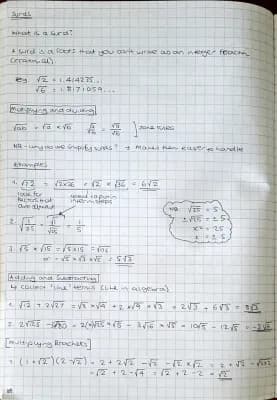 Surds
What is a surd?
A surd is a root that you can't write as an integer fraction
(irrational)
eg √2 = 1.414235...
Multiplying and dividing
√ab = √a × √b √a/√b = √(a/b) ] rules
NB - why do we simplify surds? → makes them easier to handle
Examples
1. √72 = √2×36 = √2 × √36 = 6√2
look for
factors that
are
NB √25 = 5
±√25 = ±5
x² = 25
x = ±5
2. √(1/25) = √1/√25 = 1/5
3. √5 × √15 = √5×15 = √75
or = √5 × √3 × √5 = 5√3
Adding and Subtracting
↳ collect 'like' terms (like in algebra)
1. √12 + 2√27 = √3 × √4 + 2√9 × √3 = 2√3 + 6√3 = 8√3
2. 2√125 - 3√80 = 2√25 × √5 - 3√16 × √5 = 10√5 - 12√5 = -2√5
Multiplying Brackets
1. (1+√2)(2-√2) = 2 + 2√2 - √2 - √2×√2 = 2 + √2 -
= √2 + 2 - √4 = √2 + 2 - 2 = √2